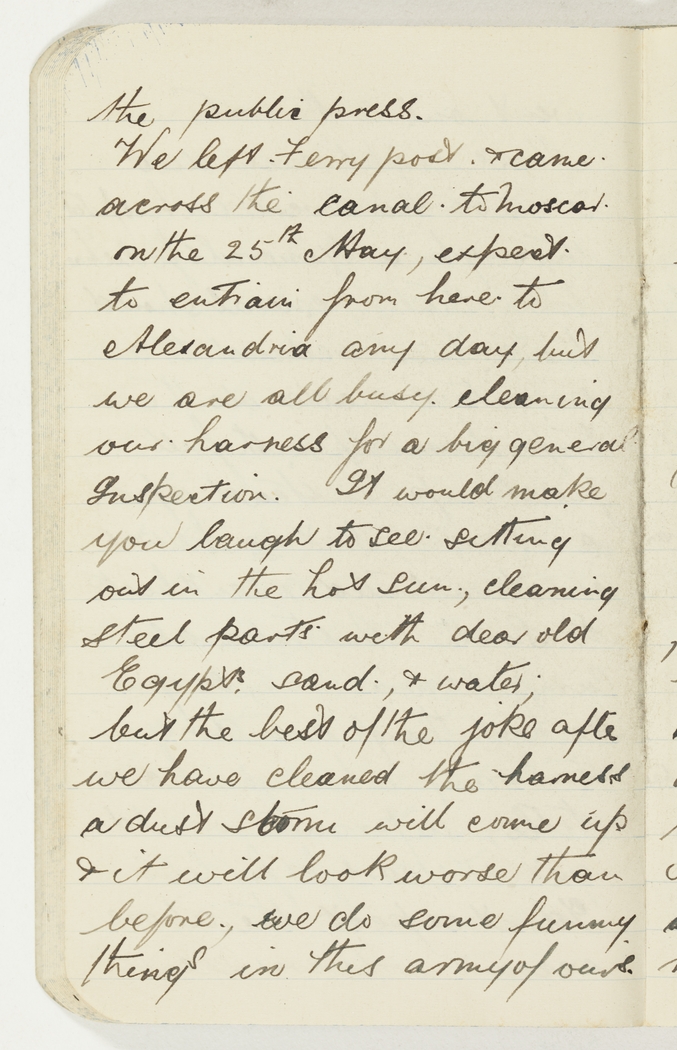 the public press.
We left Ferry post. & came.
across the canal. to Moscar.
on the 25th May, expect.
to entrain from here. to
Alexandria any day, but
we are all busy. cleaning
our. harness for a big general
Inspection. It would make
you laugh to see. sitting
out in the hot sun., cleaning
steel parts. with dear old
Egypt's. sand., & water;
but the best of the joke afte
we have cleaned the harness
a dust storm will come up
& it will look worse than
before., we do some funny
things in this army of ours.